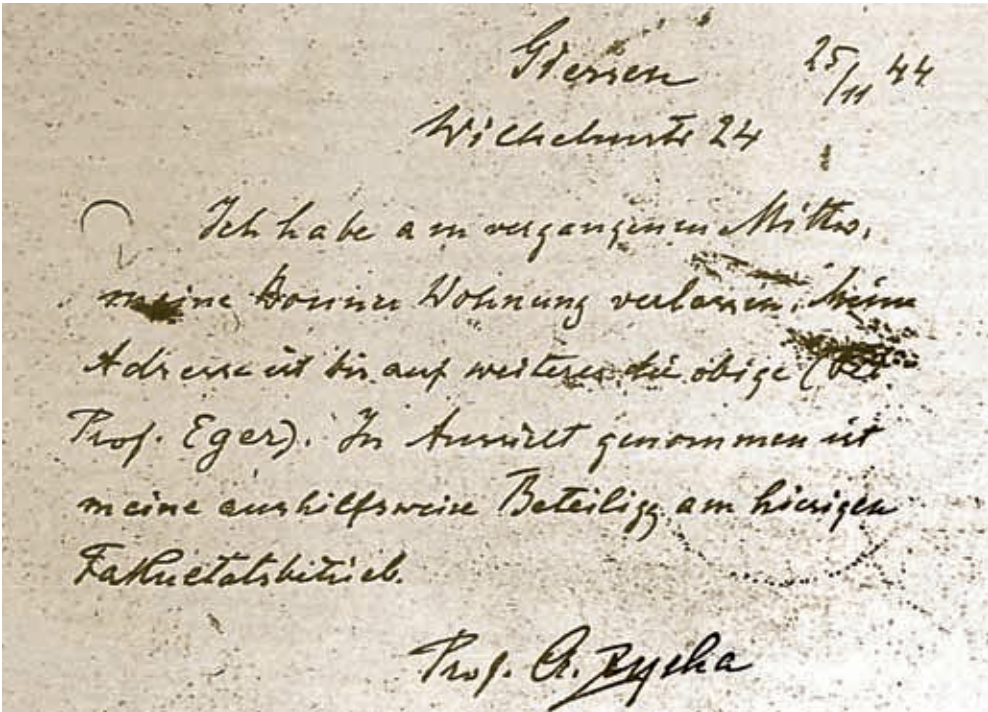 Giessen 25/11 44
Wilhelmstr 24
Ich habe am vergangenen Mittw.
meine Bonner Wohnung verlassen. Meine
Adresse ist bis auf weiteres die obige (bei
Prof. Eger). In Aussicht genommen ist
meine aushilfsweise Beteiligg. am hiesigen
Fakultätsbetrieb.
Prof. A. Zycha